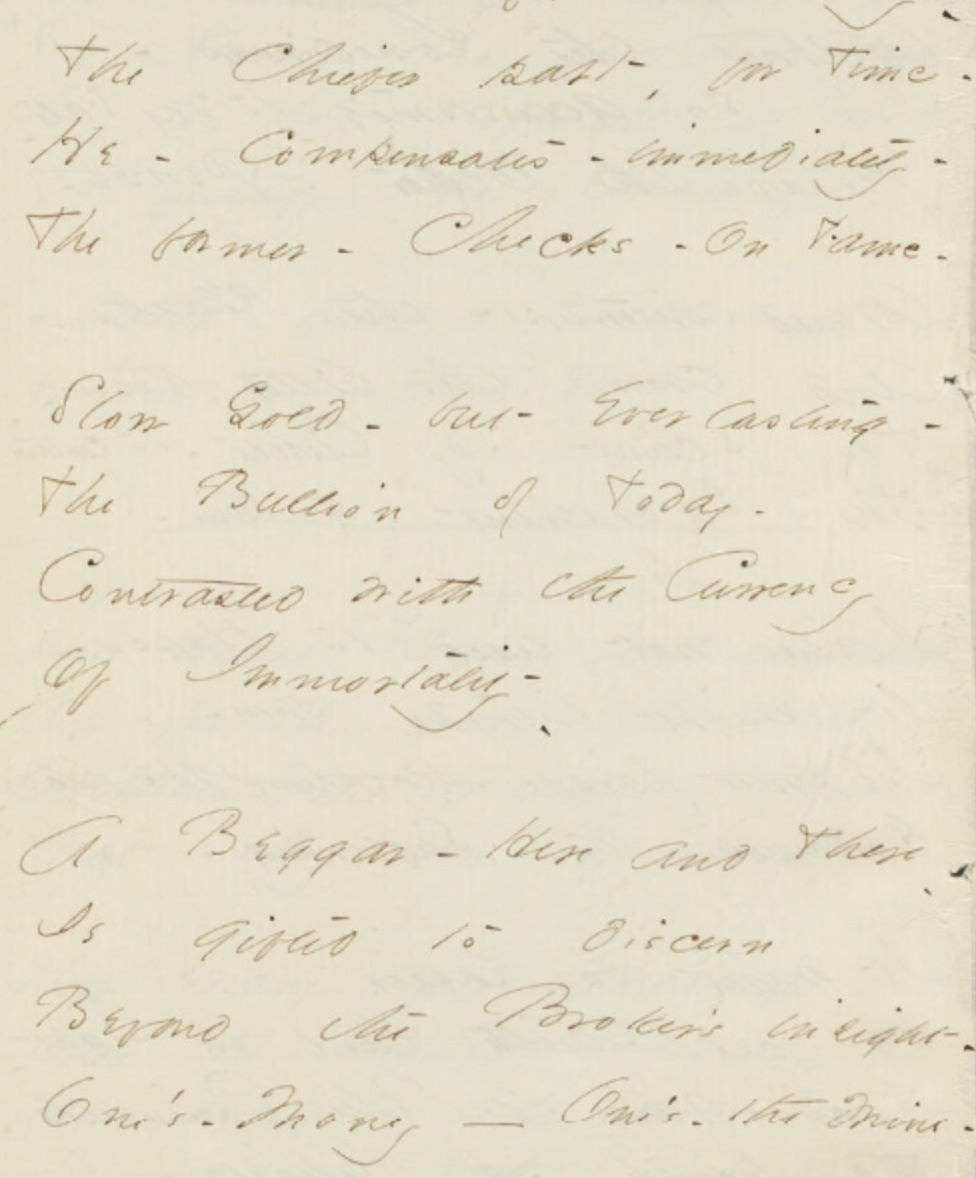 The Chiefer part, for Time -
He - Compensates - immediately -
The former - Checks - On Fame -
Slow Gold - but Everlasting -
The Bullion of Today -
Contrasted with the Currency
Of Immortality -
A Beggar - Here and There
Is gifted to discern
Beyond the Broker's insight -
One's - Money — One's - the Mine -